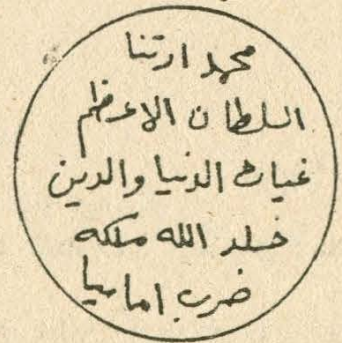 محمد ارتنا
السلطان الاعظم
غياث الدنيا والدين
خلد الله ملكه
ضرب اماسيا